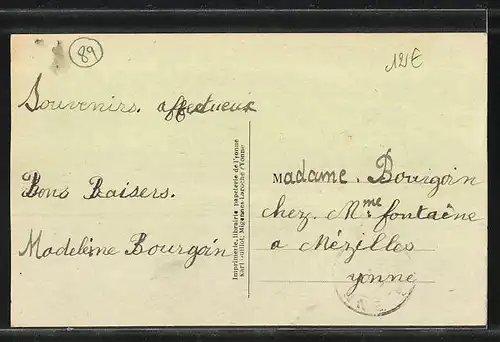 89
12€
Souvenirs. affectueux
Bons Baisers.
Madeleine Bourgoin
Imprimerie, librairie papeterie de l'Yonne
Karl Guillot, Migennes-Laroche (Yonne)
Madame. Bourgoin
chez. Mme. fontaine
a Mézilles
yonne